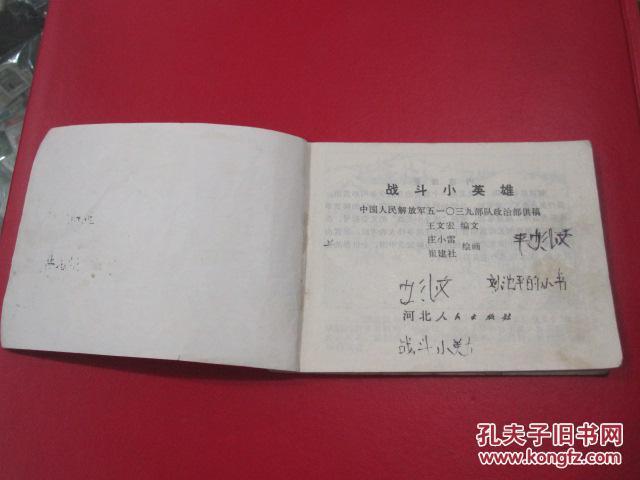 战斗小英雄
中国人民解放军五一〇三九部队政治部供稿
王文宏 编文
庄小雷
崔建社 绘画
刘沈平的小书
河北人民出版社
战斗小英
孔夫子旧书网
KONGFZ.COM